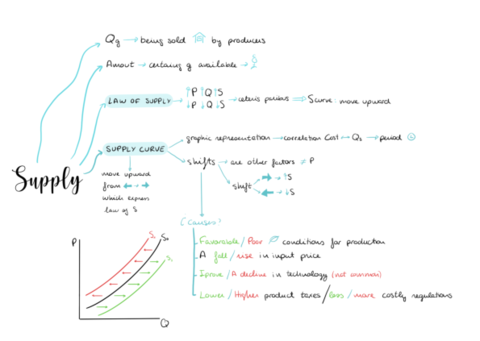 Qg → being sold by producers
Amout → certaing g available →
LAW OF SUPPLY → ↑P ↑Q ↑S → ceteris paribus ⇒ Scurve move upward
↓P ↓Q ↓S
SUPPLY CURVE → graphic representation → correlation Cost ↔ Qs → period
shifts → are other factors ≠ P
Supply
move upward
from ← →
which express
law of S
shift → ↑S
← ↓S
(causes)
P
S₂ S₀ S₁
Q
Favorable / Poor conditions for production
A fall / rise in input price
Iprove / A decline in technology (not common)
Lower / Higher product taxes / less / more costly regulations